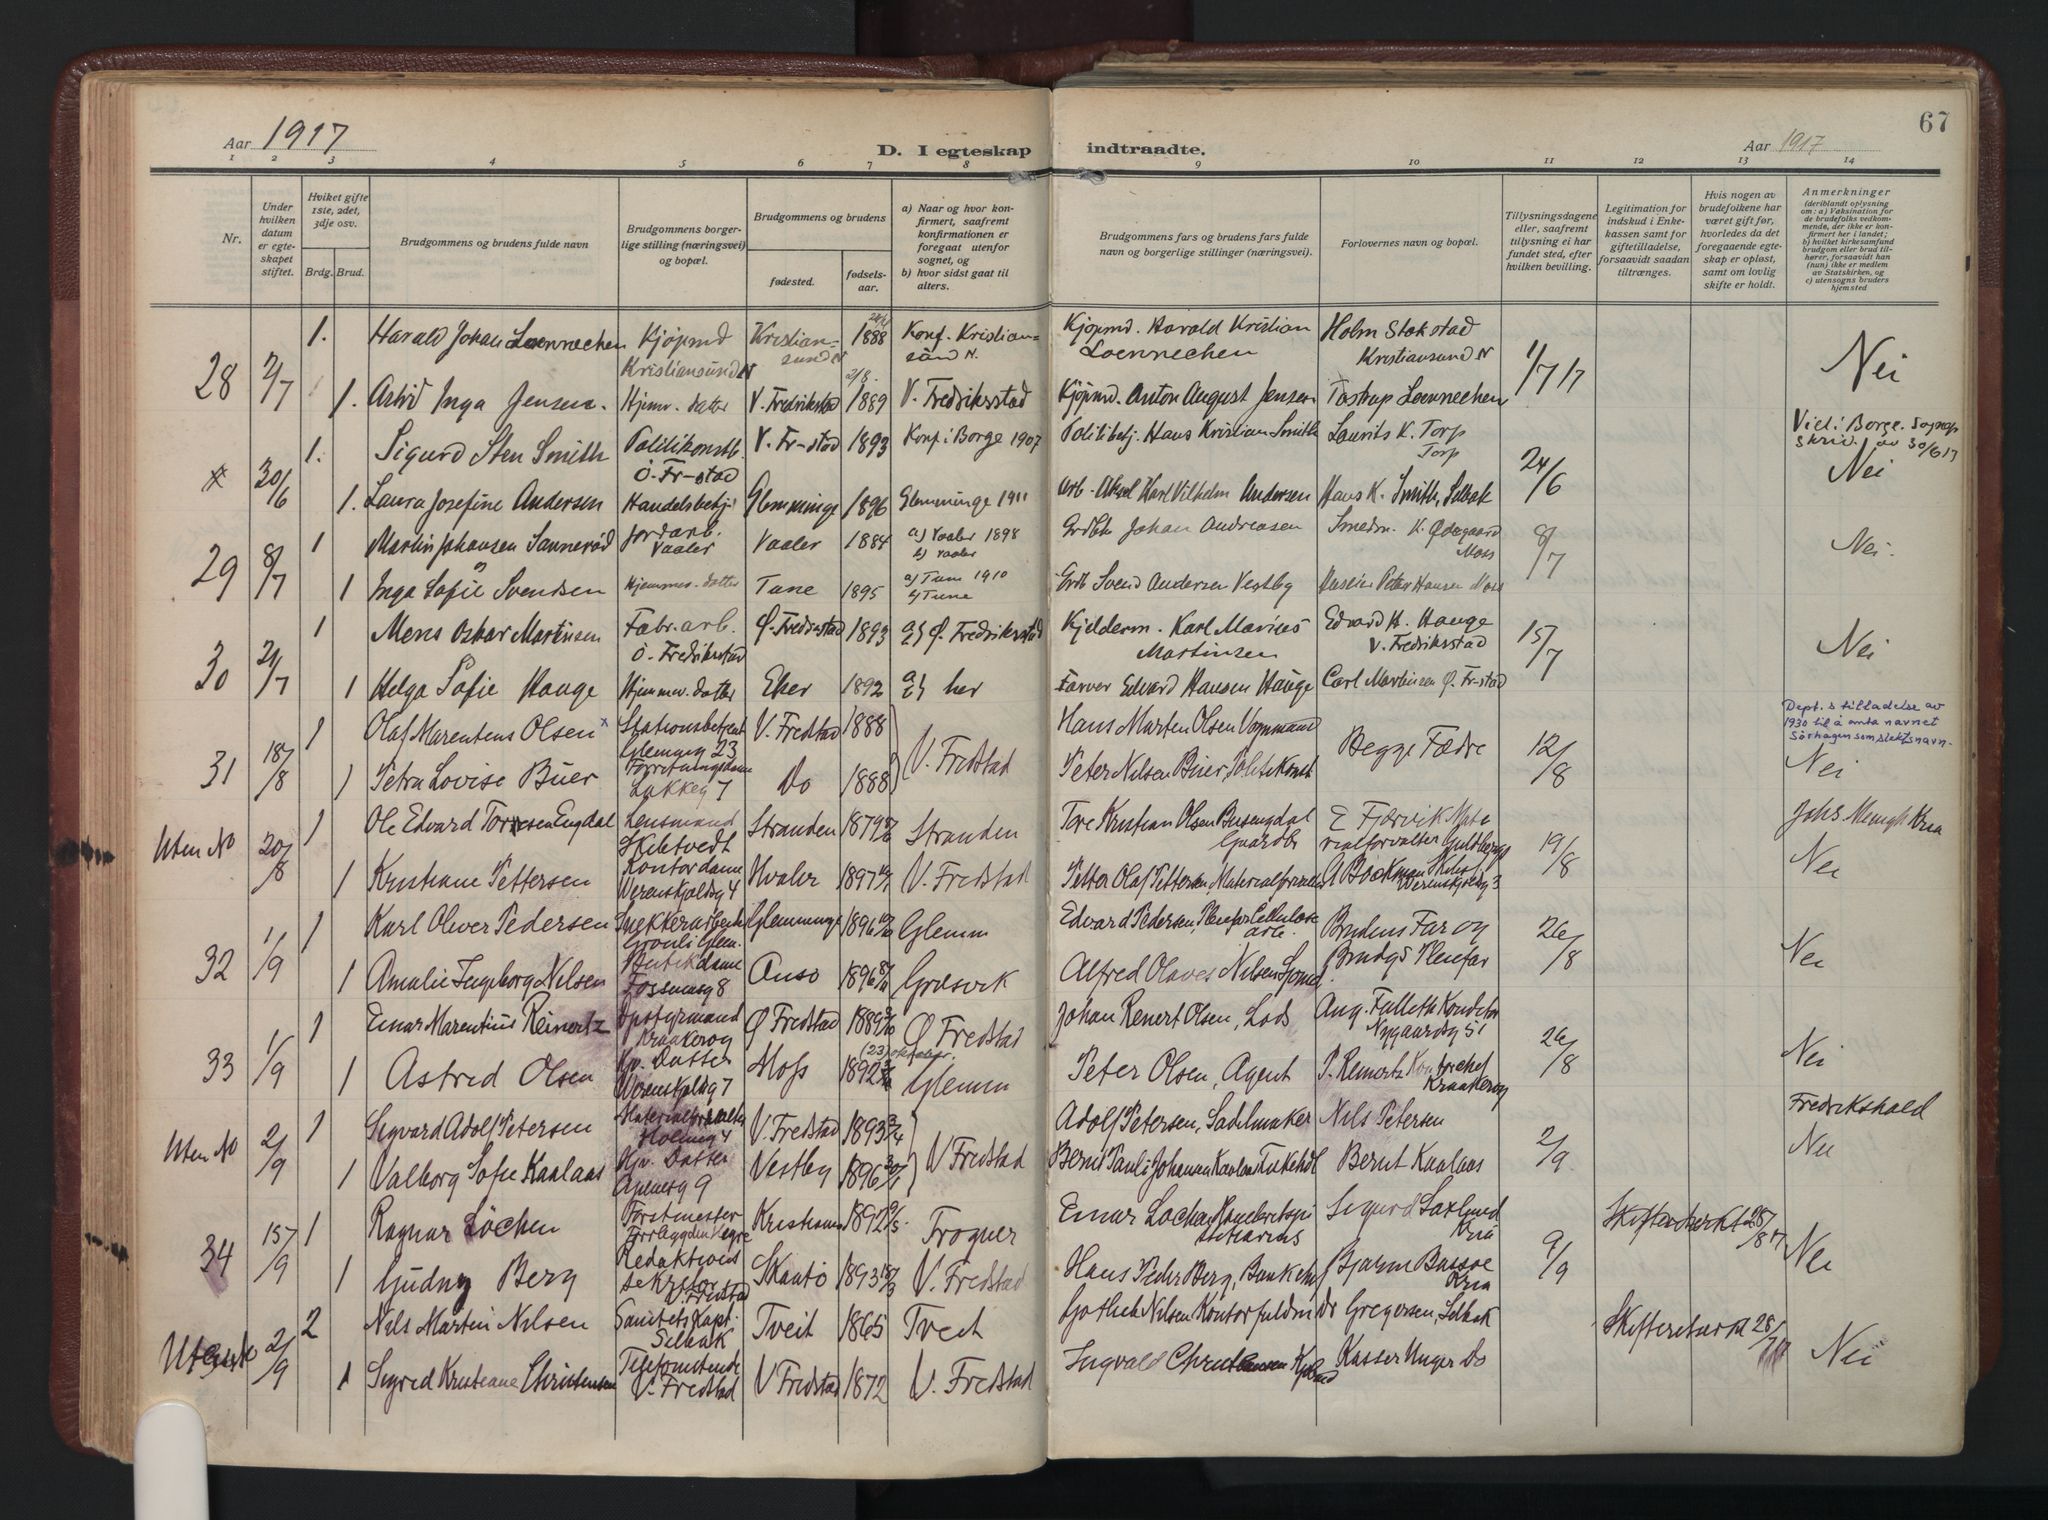 67
Aar 1917
D. I egteskap indtraadte.
Aar 1917
1 2 3 4 5 6 7 8 9 10 11 12 13 14
Nr.
Under hvilken datum er egteskapet stiftet.
Hviket gifte 1ste, 2det, 3dje osv.
Brdg. Brud.
Brudgommens og brudens fulde navn
Brudgommens borgerlige stilling (næringsvei) og bopæl.
Brudgommens og brudens
fødested.
fødselsaar.
a) Naar og hvor konfirmert, saafremt konfirmationen er foregaat utenfor sognet, og
b) hvor sidst gaat til alters.
Brudgommens fars og brudens fars fulde navn og borgerlige stillinger (næringsvei).
Forlovernes navn og bopæl.
Tillysningsdagene eller, saafremt tillysning ei har fundet sted, efter hvilken bevilling.
Legitimation for indskud i Enkekassen samt for giftetilladelse, forsaavidt saadan tiltrænges.
Hvis nogen av brudefolkene har været gift før, hvorledes da det foregaaende egteskap er opløst, samt om lovlig skifte er holdt.
Anmerkninger
(deriblandt oplysning om: a) Vaksination for de brudefolks vedkommende, der ikke er konfirmert her i landet; b) hvilket kirkesamfund brudgom eller brud tilhører, forsaavidt han (hun) ikke er medlem av Statskirken, og c) utensogns bruders hjemsted
28 2/7 1. Harald Johan Loennechen Kjöpmd Kristiansund N Kristiansund N 1888 Konf. Kristiansund N. Kjöpmd. Harald Kristian Loennechen Holm Stokstad Kristiansund N 1/7 17 Nei
1. Astrid Inga Jensen. Hjemv. datter V. Fredrikstad 2/8 1889 V. Fredriksstad Kjöpmd. Anton August Jensen Tostrup Loennechen
30/6 1. Sigurd Sten Smith Politikonstb. Ö. Fr-stad V. Fr-stad 1893 Konf i Borge 1907 Politibetj. Hans Kristian Smith Laurits K. Torp Torp 24/6 Viet i Borge. av 30/6 17 Nei
1. Laura Josefine Andersen Handelsbetj. Glemminge 1896 Glemminge 1911 Arb. Aksel Karl Vilhelm Andersen Hans K. Smith, Selbak
29 8/7 1 Martin Johansen Sannerød Jordarb. Vaaler Vaaler 1884 a) Vaaler 1898 b) Vaaler Johan Andreasen Smedm. K. Ødegaard Moss 8/7 Nei.
1 Inga Sofie Svendsen Hjemmev. datter Tune 1895 a) Tune 1910 b) Tune Svend Andersen Vestby Peter Hansen Moss
30 21/7 1 Mens Oskar Martinsen Fabr. arb. Ö. Fredrikstad Ø. Fredrstad 1893 Ø. Fredriksstad Kjelderm. Karl Marius Martinsen Edvard H. Hauge V. Fredriksstad 15/7 Nei
1 Helga Sofie Hauge Hjemmev. datter Eker 1892 her Farver Edvard Hansen Hauge Carl Martinsen Ø. Fr-stad
31 18/8 1 Olaf Marentius Olsen x Stationsbetjent Glemmg 23 V. Fredstad 1888 V. Fredstad Hans Marten Olsen Vognmand Begge Fædre 12/8 Dept. s tilladelse av 1930 til å anta navnet Sörhagen som slektsnavn. Nei
1 Petra Lovise Buer Forretningsdame Lakkeg 7 Do 1888 Peter Nilsen Buer, Politikonst
Uten No 20/8 1 Ole Edvard Toresen Engdal Lensmand Skibtvedt Stranden 1879 Stranden Tore Kristian Olsen Gaardbr E Fjørvik Materialforvalter 19/8 Johs. Kria Nei
1 Kristiane Pettersen Kontordame Werenskjoldsg 4 Hvaler 1897 V. Fredstad Petter Olaf Pettersen, Materialforvalter A Backman Werenskjoldsg 3
32 1/9 1 Karl Oliver Pedersen Glemminge 1896 Glemm Edvard Pedersen, Pleiefar Cellulose arb. Brudens Far og Brudgs Pleiefar 26/8 Nei
1 Amalie Ingeborg Nilsen Butikdame Fossensg 8 Onsø 1896 Græsvik Alfred Olaves Nilsen
33 1/9 1 Einar Marentius Reinertz Opstyrmand Kraakerøy Ø Fredstad 1889 Ø Fredstad Johan Renert Olsen, Lods Aug. Falleth Konditor Nygaardsg 51 26/8 Nei
1 Astrid Olsen Hjv. Datter Werenskjoldsg 7 Moss 1892 (23) oktober. Glemm Peter Olsen, Agent P. Reinertz Kontorchef Kraakerøy
Uten No 2/9 1 Sigvard Adolf Petersen Materialforvalter V. Fredstad 1893 3/4 V Fredstad Adolf Petersen, Sadelmaker Nils Petersen 2/9 Fredrikshald Nei
1 Valborg Sofie Kaalaas Hjv. Datter 9 Vestby 1896 Bernt Pauli Johansen Kaalaas Bernt Kaalaas
34 15/9 1 Ragnar Löchen Forstmester Kristiania 1892 Frogner Einar Lochen Sigurd Saxlund Kria 9/9 Skifteattest 28/8 17 Nei
1 Gudny Berg Redaktions sekretær V. Fredstad Skaatö 1893 V. Fredstad Hans Peder Berg, Bankchef Bjarne Bassøe Kria
2/9 2 Nils Martin Nilsen Sanitets Kapt. Selbak Tveit 1865 Tveit Nilsen Kontorfuldm Dr Gregersen, Selbak Skifteattest 28/7 17 Nei
1 Sigrid Kristiane Christensen V. Fredstad V Fredstad 1872 V. Fredstad Ingvald Christensen Kasser Unger Do